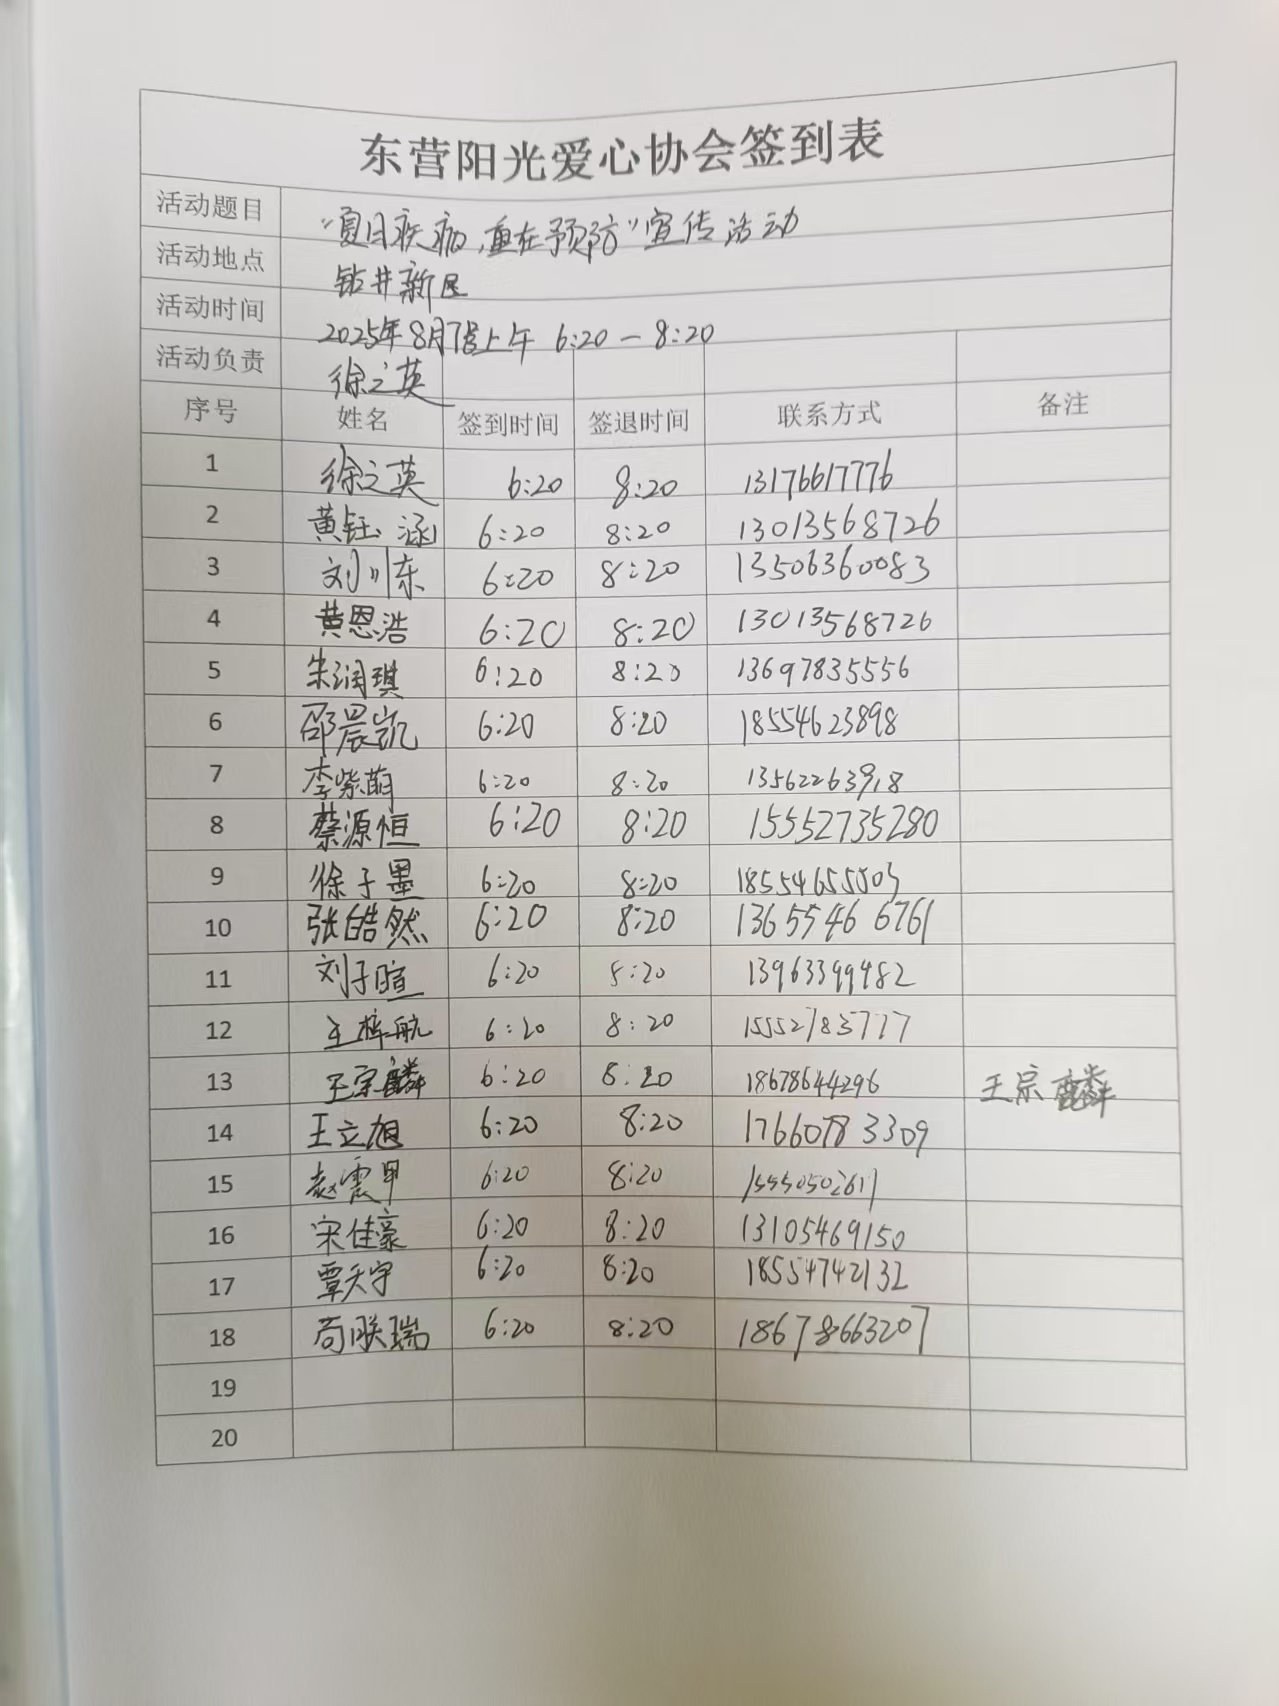 东营阳光爱心协会签到表
活动题目 "夏日疾病,重在预防"宣传活动
活动地点 钻井新区
活动时间 2025年8月7号上午 6:20—8:20
活动负责 徐之英
序号 姓名 签到时间 签退时间 联系方式 备注
1 徐之英 6:20 8:20 13176617776
2 黄钰涵 6:20 8:20 13013568726
3 刘川东 6:20 8:20 13506360083
4 黄恩浩 6:20 8:20 13013568726
5 朱润琪 6:20 8:20 13697835556
6 邵晨凯 6:20 8:20 18554623898
7 李紫萌 6:20 8:20 13562263918
8 蔡源恒 6:20 8:20 15552735280
9 徐子墨 6:20 8:20
10 张皓然 6:20 8:20 13655466761
11 刘子暄 6:20 8:20 13963399482
12 王梓航 6:20 8:20 15552783777
13 王宗麟 6:20 8:20 18678644296 王宗麟
14 王立旭 6:20 8:20 17660783309
15 赵震甲 6:20 8:20 15550502611
16 宋佳豪 6:20 8:20 13105469150
17 覃天宇 6:20 8:20 18554742132
18 苟联瑞 6:20 8:20 18678663207
19
20